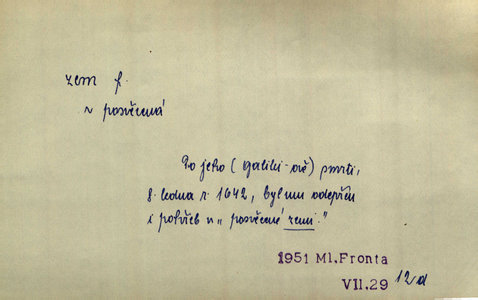 zem f.
~ posvěcená
Po jeho (Galilei-ově) smrti,
8. ledna r. 1642, byl mu odepřen
i pohřeb v „posvěcené zemi."
1951 Ml.Fronta
VII.29 12a